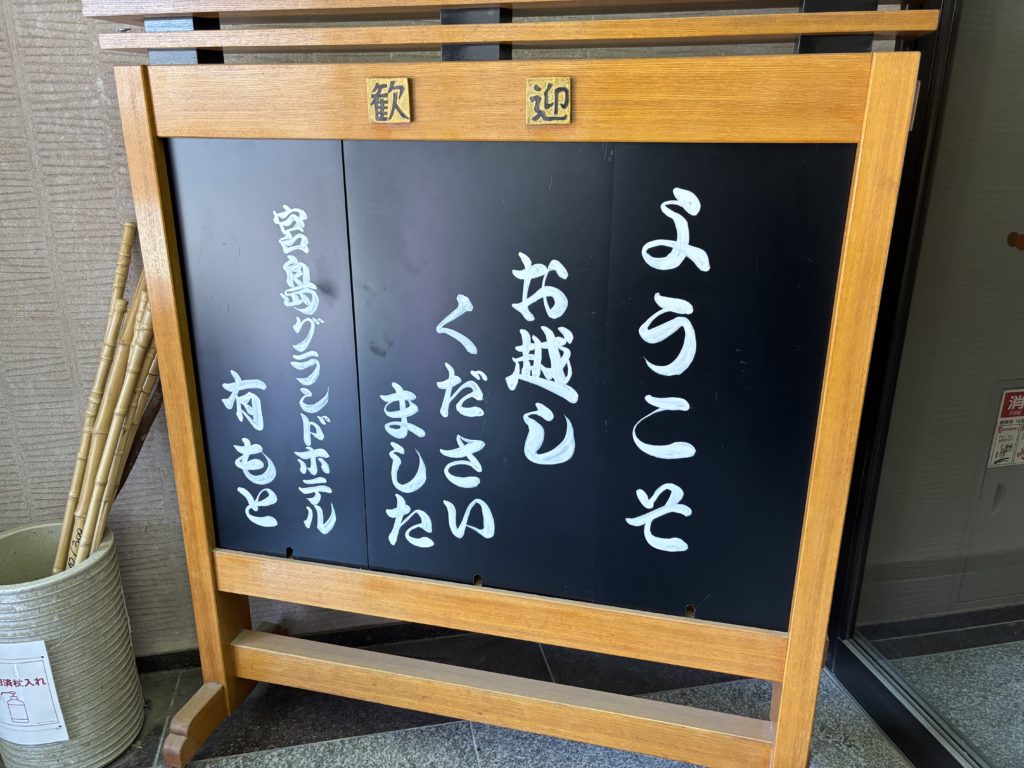 歓迎
ようこそ
お越し
ください
ました
宮島グランドホテル
有もと
済杖入れ
消